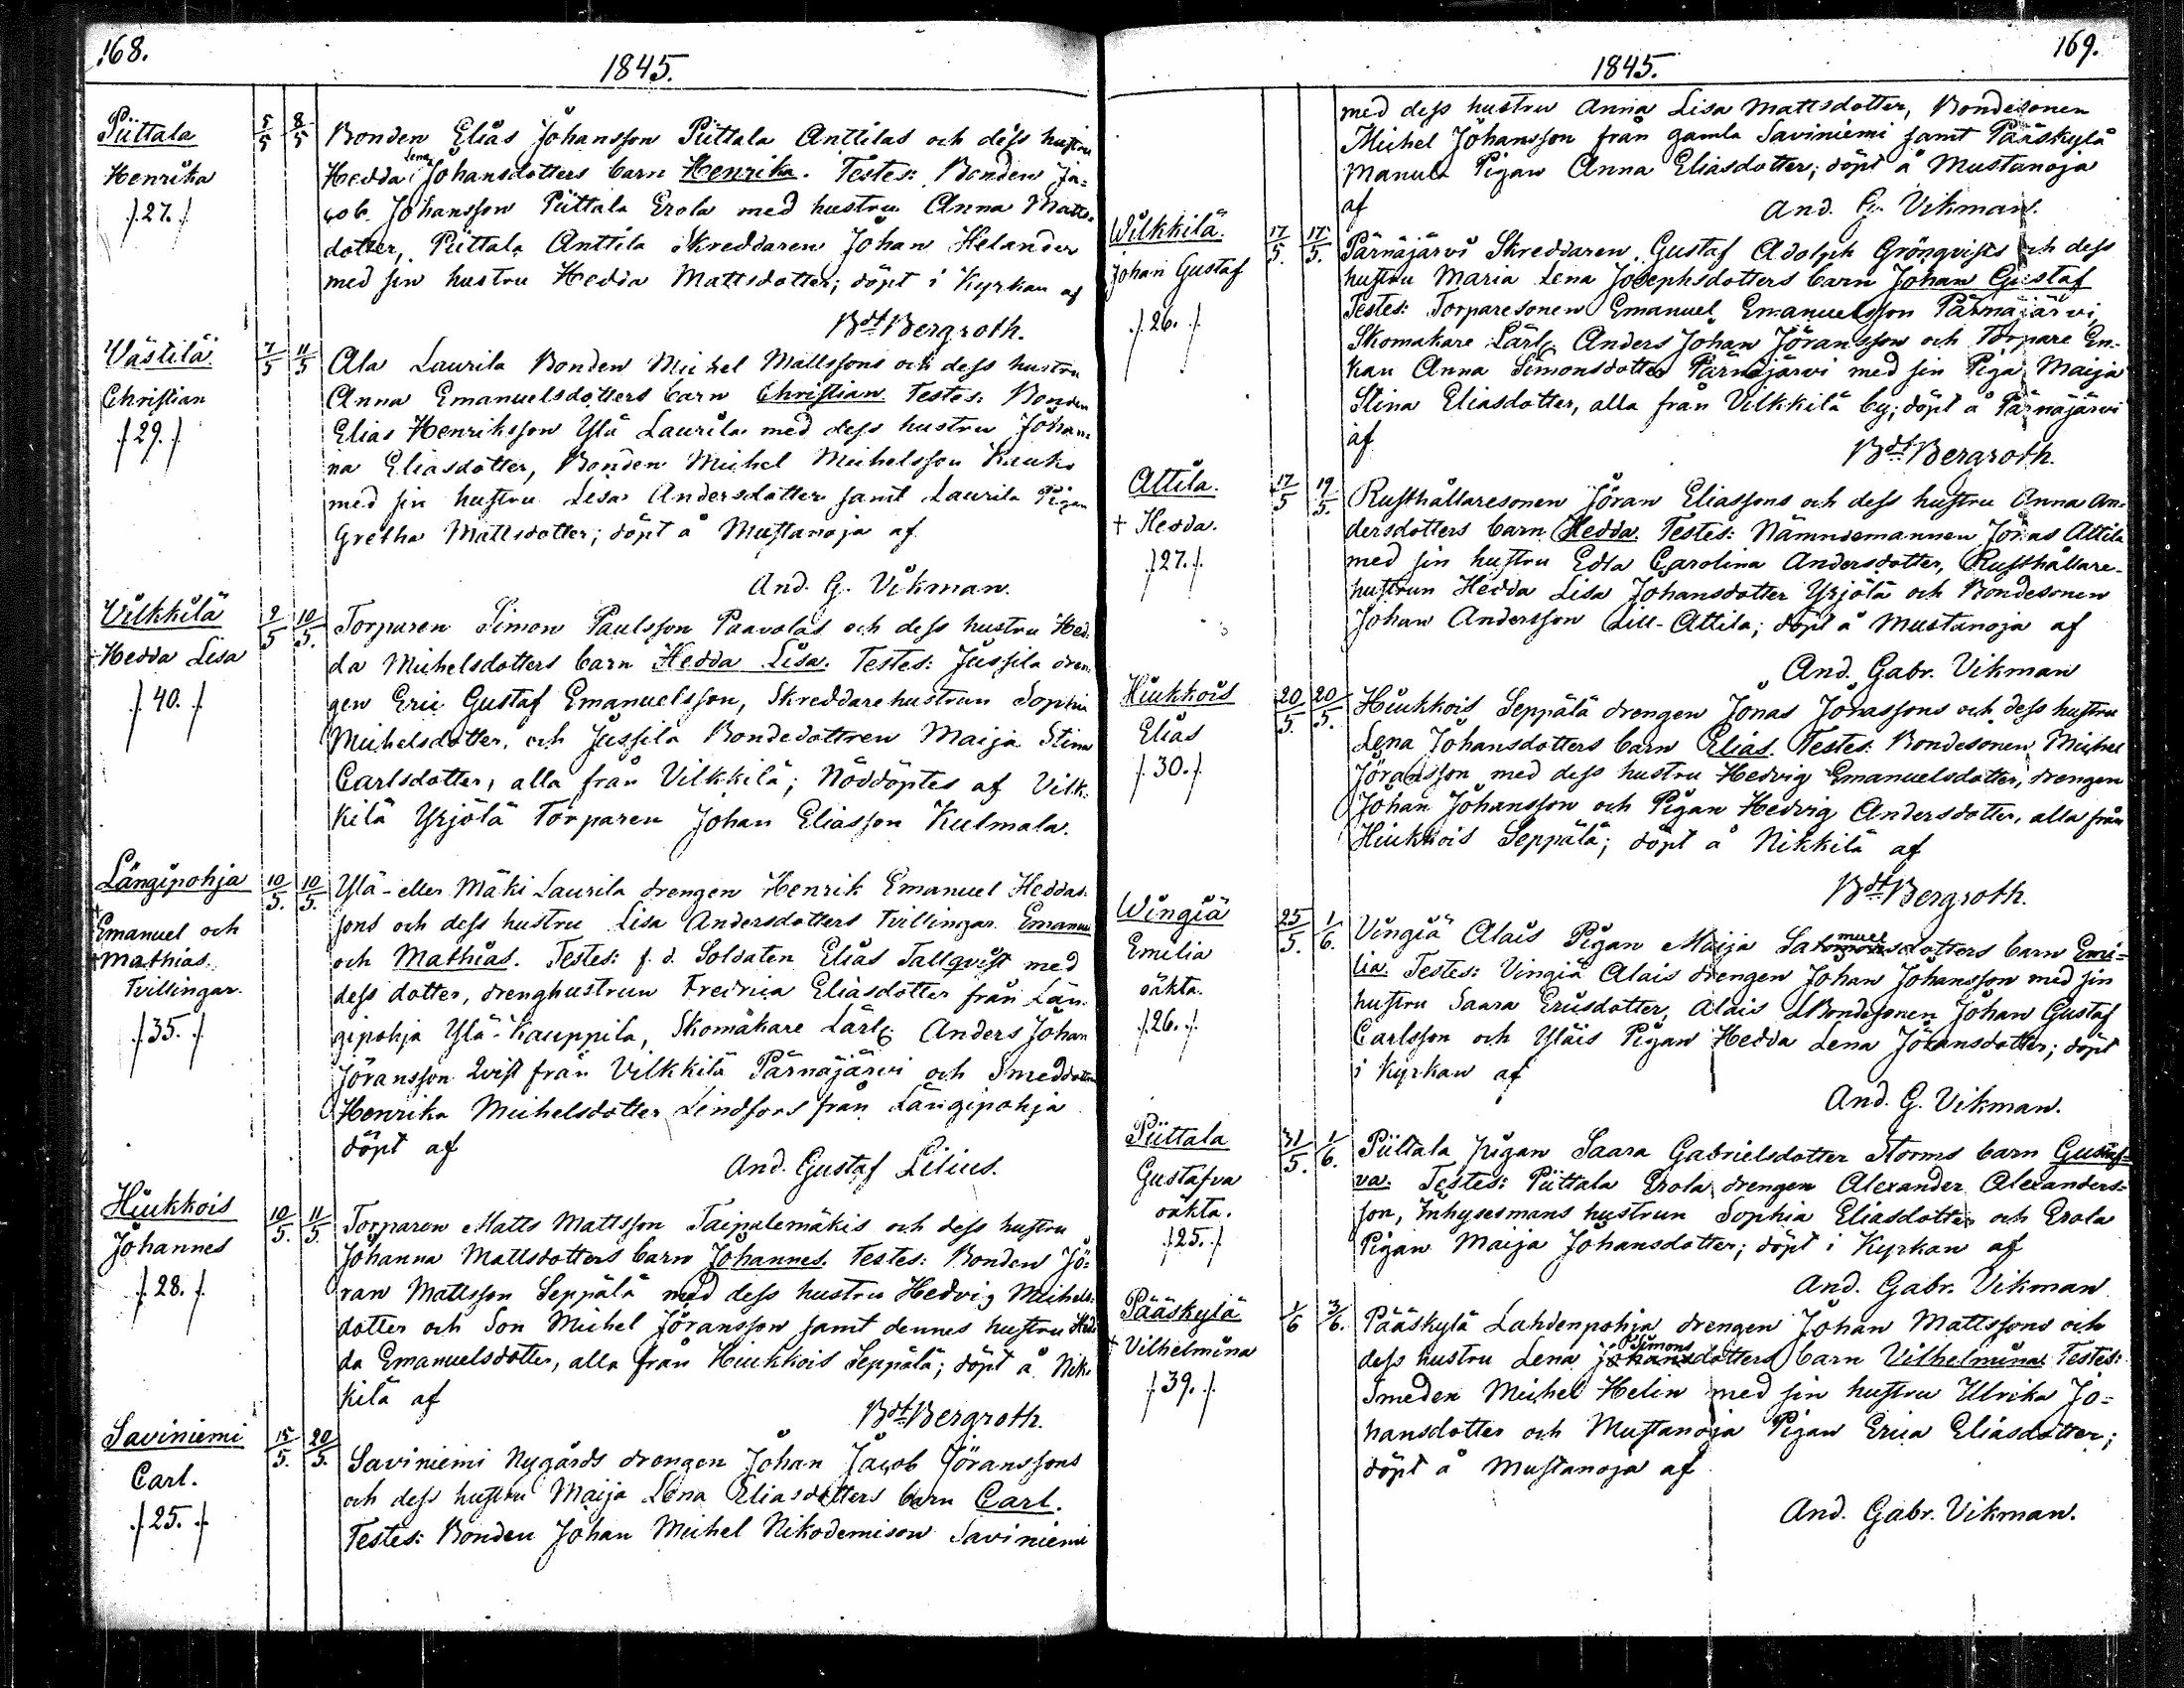 168.
1845.
Piittala
Henrika
/.27./
5/5 8/5
Bonden Elias Johansson Piittala Anttilas och dess hustru
Hedda Lena Johansdotters barn Henrika. Testes: Bonden Ja-
cob Johansson Piittala Erola med hustru Anna Matts-
dotter, Piittala Anttila Skreddaren Johan Helander
med sin hustru Hedda Mattsdotter; döpt i Kyrkan af
Bdt Bergroth.
Västilä
Christian
/.29./
7/5 11/5
Ala Laurila Bonden Michel Mattssons och dess hustru
Anna Emanuelsdotters barn Christian Testes: Bonden
Elias Henriksson Ylä Laurila med dess hustru Johan-
na Eliasdotter, Bonden Michel Michelsson Kauko
med sin hustru Lisa Andersdotter samt Laurila Pigan
Gretha Mattsdotter; döpt å Mustanoja af
And. G. Vikman.
Vilkkilä
† Hedda Lisa
/.40./
2/5 10/5.
Torparen Simon Paulsson Paavolas och dess hustru Hed-
da Michelsdotters barn Hedda Lisa. Testes: Jussila dren-
gen Eric Gustaf Emanuelsson, Skreddarehustrun Sophia
Michelsdotter, och Jussila Bondedottren Maija Stina
Carlsdotter, alla från Vilkkilä; Nöddöptes af Vilk-
kilä Yrjölä Torparen Johan Eliasson Kulmala.
Längipohja
† Emanuel och
† Mathias.
Tvillingar.
/.35./
10/5. 10/5.
Ylä- eller Mäki Laurila drengen Henrik Emanuel Heddas-
sons och dess hustru Lisa Andersdotters Tvillingar Emanuel
och Mathias. Testes: f. d. Soldaten Elias Tallqvist med
dess dotter, drenghustrun Fredrica Eliasdotter från Län-
gipohja Ylä-Kauppila, Skomakare Lärl. Anders Johan
Jöransson Qvist från Vilkkilä Pärnäjärvi och Smeddottren
Henrika Michelsdotter Lindfors från Längipohja
döpt af
And. Gustaf Lilius.
Hiukkois
Johannes
/.28./
10/5. 11/5.
Torparen Matts Mattsson Taipalemäkis och dess hustru
Johanna Mattsdotters barn Johannes. Testes: Bonden Jö-
ran Mattsson Seppälä med dess hustru Hedvig Michels-
dotter och Son Michel Jöransson samt dennes hustru Hed-
da Emanuelsdotter, alla från Hiukkois Seppälä; döpt å Nik-
kilä af
Bdt Bergroth.
Saviniemi
Carl.
/.25./
15/5. 20/5.
Saviniemi Nygårds drengen Johan Jacob Jöranssons
och dess hustru Maija Lena Eliasdotters barn Carl.
Testes: Bonden Johan Michel Nikodemisson Saviniemi
169.
1845.
med dess hustru Anna Lisa Mattsdotter, Bondesonen
Michel Johansson från gamla Saviniemi samt Pääskylä
Manula Pigan Anna Eliasdotter; döpt å Mustanoja
af
And. G. Vikman.
Wilkkilä.
Johan Gustaf
/.26./
17/5. 17/5.
Pärnäjärvi Skreddaren Gustaf Adolph Grönqvists och dess
hustru Maria Lena Josephsdotters barn Johan Gustaf
Testes: Torparesonen Emanuel Emanuelsson Pärnäjärvi
Skomakare Lärl. Anders Johan Jöransson och Torpare En-
kan Anna Simonsdotter Pärnäjärvi med sin Piga Maija
Stina Eliasdotter, alla från Vilkkilä by; döpt å Pärnäjärvi
af
Bdt Bergroth.
Attila.
† Hedda.
/.27./
17/5 19/5.
Rusthållaresonen Jöran Eliassons och dess hustru Anna An-
dersdotters barn Hedda. Testes: Nämndemannen Jonas Attila
med sin hustru Edla Carolina Andersdotter, Rusthållare-
hustrun Hedda Lisa Johansdotter Yrjölä och Bondesonen
Johan Andersson Lill-Attila; döpt å Mustanoja af
And. Gabr. Vikman
Hiukkois
Elias
/.30./
20/5. 20/5.
Hiukkois Seppälä drengen Jonas Jonassons och dess hustru
Lena Johansdotters barn Elias. Testes: Bondesonen Michel
Jöransson med dess hustru Hedvig Emanuelsdotter, drengen
Johan Johansson och Pigan Hedvig Andersdotter, alla från
Hiukkois Seppälä; döpt å Nikkilä af
Bdt Bergroth.
Wingiä
Emilia
oäkta.
/.26./
25/5. 1/6.
Vingiä Alais Pigan Maija Samuelsdotters barn Emi-
lia. Testes: Vingiä Alais drengen Johan Johansson med sin
hustru Saara Ericsdotter, Alais Bondesonen Johan Gustaf
Carlsson och Yläis Pigan Hedda Lena Johansdotter; döpt
i Kyrkan af
And. G. Vikman.
Piittala
Gustafva
oäkta.
/.25./
31/5. 1/6.
Piittala Pigan Saara Gabrielsdotter Storms barn Gustaf-
va. Testes: Piittala Erola drengen Alexander Alexanders-
son, Inhysesmans hustrun Sophia Eliasdotter och Erola
Pigan Maija Johansdotter; döpt i Kyrkan af
And. Gabr. Vikman
Pääskylä
† Vilhelmina
/.39./
1/6 3/6.
Pääskylä Lahdenpohja drengen Johan Mattssons och
dess hustru Lena Simonsdotters barn Vilhelmina. Testes:
Smeden Michel Helin med sin hustru Ulrika Jo-
hansdotter och Mustanoja Pigan Erica Eliasdotter;
döpt å Mustanoja af
And. Gabr. Vikman.